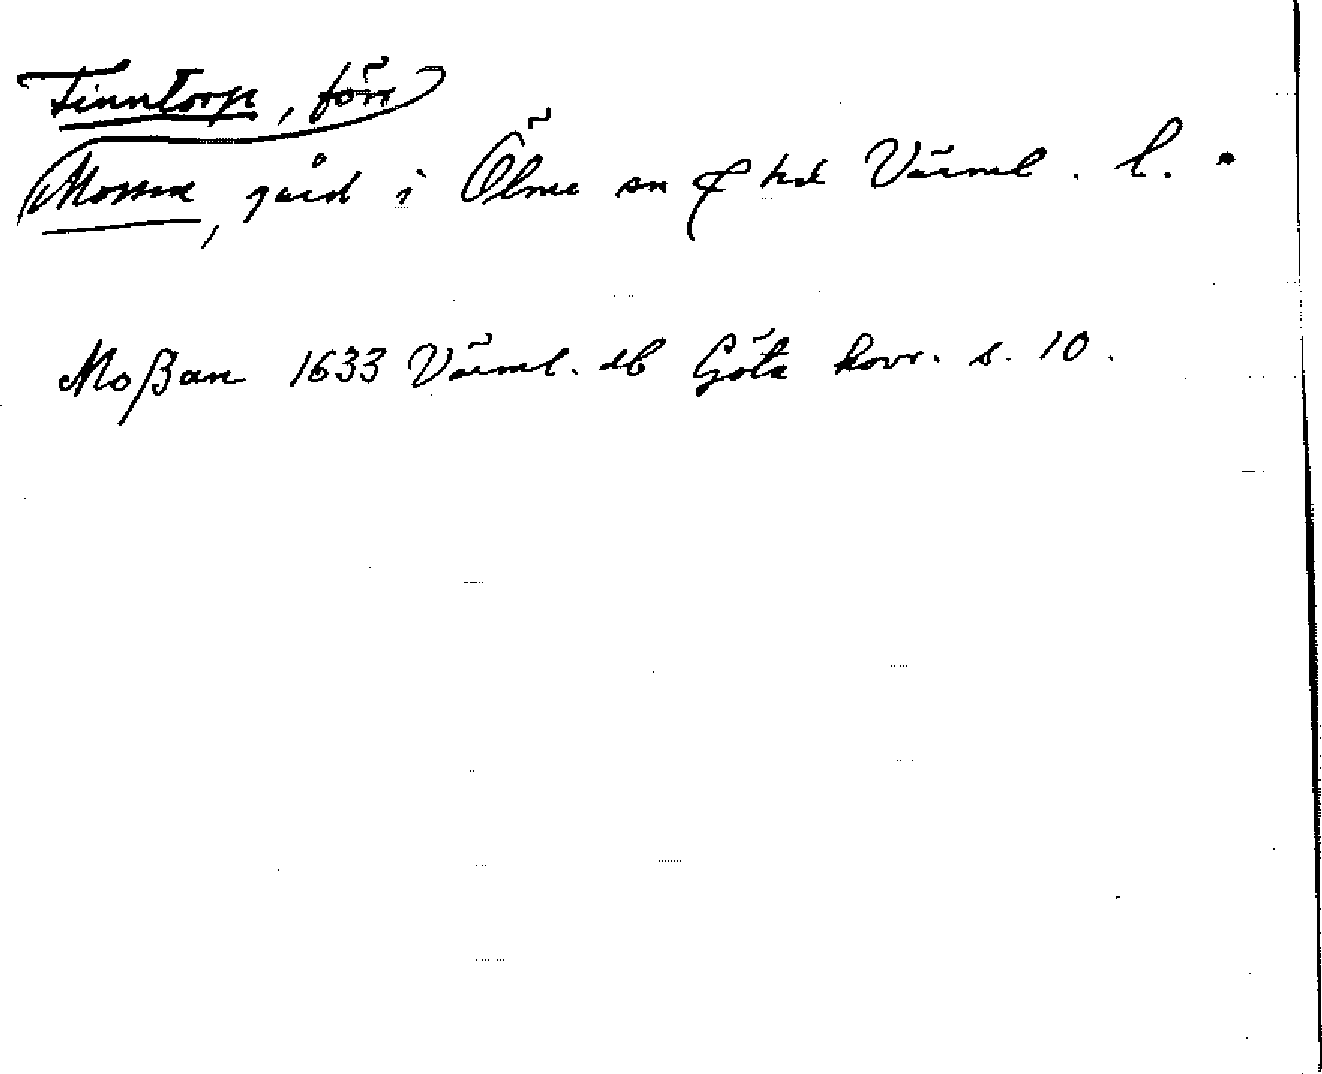 Finntorp, förr
Mossen, gård i Ölme sn o hd Värml. l.
Moßan 1633 Värml. db Göta hovr. s. 10.